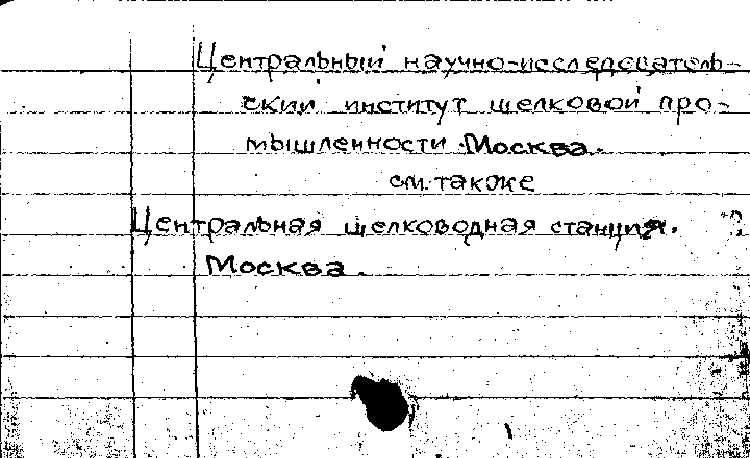 Центральный научно-исследователь-
ский институт шелковой про-
мышленности. Москва.
см. также
Центральная шелководная станция.
Москва.